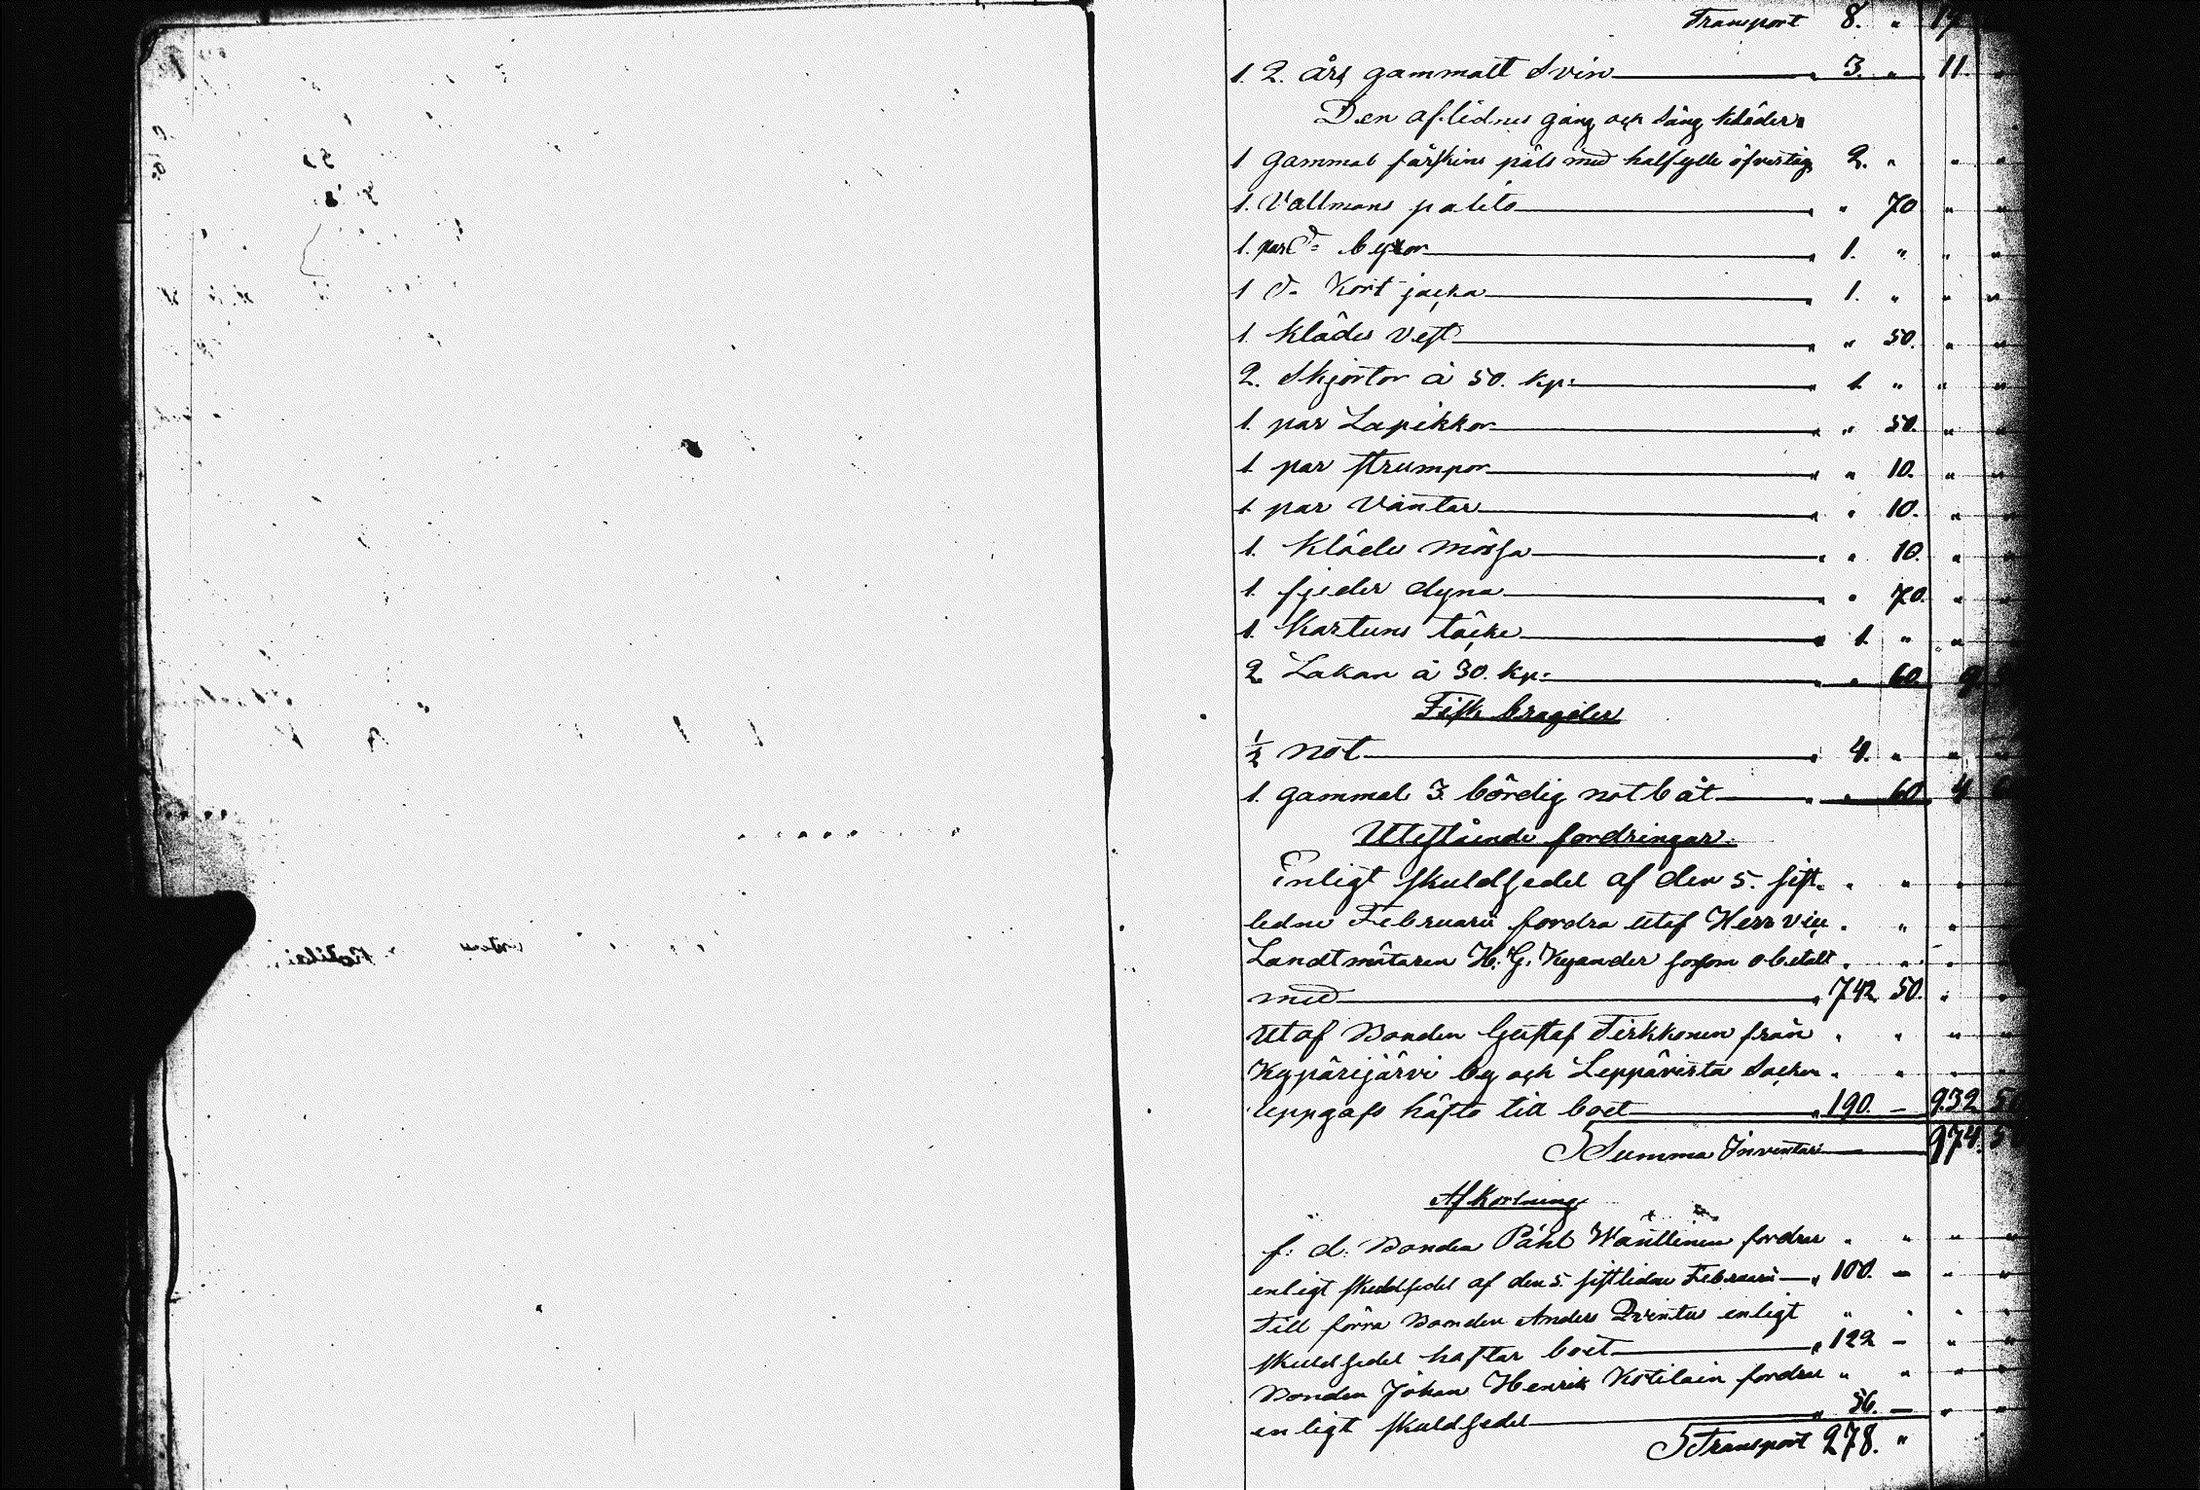 Transport 8. " 17
1. 2. års gammalt Svin 3. " 11. "
Den aflidnes gång och säng kläder.
1 gammal fårskins päls med halfylle öfvertåg 2. " " "
1. Vallmans palito " 70 " "
1. par do byxor 1. " " "
1 do Kort jacka 1. " " "
1. Klädes Vest " 50. " "
2. Skjortor à 50. Kp: 1 " " "
1. par Lapikkor " 50. " "
1 par strumpor " 10. " "
1 par Vantar " 10. " "
1. Klädes mössa " 10. " "
1. fjeder dyna " 70. " "
1. Kartuns täcke 1. " "
2 Lakan à 30. Kp: " 60. 9.
Fisk bragder
½ not 4. " " "
1. gammal 3. bördig notbåt " 60 4 6
Utestående fordringar.
Enligt skuldsedel af den 5. sist- " " " "
ledne Februarii fordra utaf Herr vice " " "
Landtmätaren H. G. Kyander såsom obetalt " " "
med 742. 50. " "
Utaf Bonden Gustaf Tirkkonen från " " " "
Kypärijärvi by och Leppävirta Socken " " " "
uppgafs häfta till boet 190. — 932 50
Summa Inventar 974. 5
Afkortning
f: d: Bonden Påhl Wänttinen fordrar " " " "
enligt skuldsedel af den 5. sistledne Februarii 100. — " "
Till förra Bonden Anders Qvintus enligt " " " "
skuldsedel häftar boet 122 — " "
Bonden Johan Henrik Kotilain fordrar " " " "
enligt skuldsedel 56. — " "
Transport 278. "